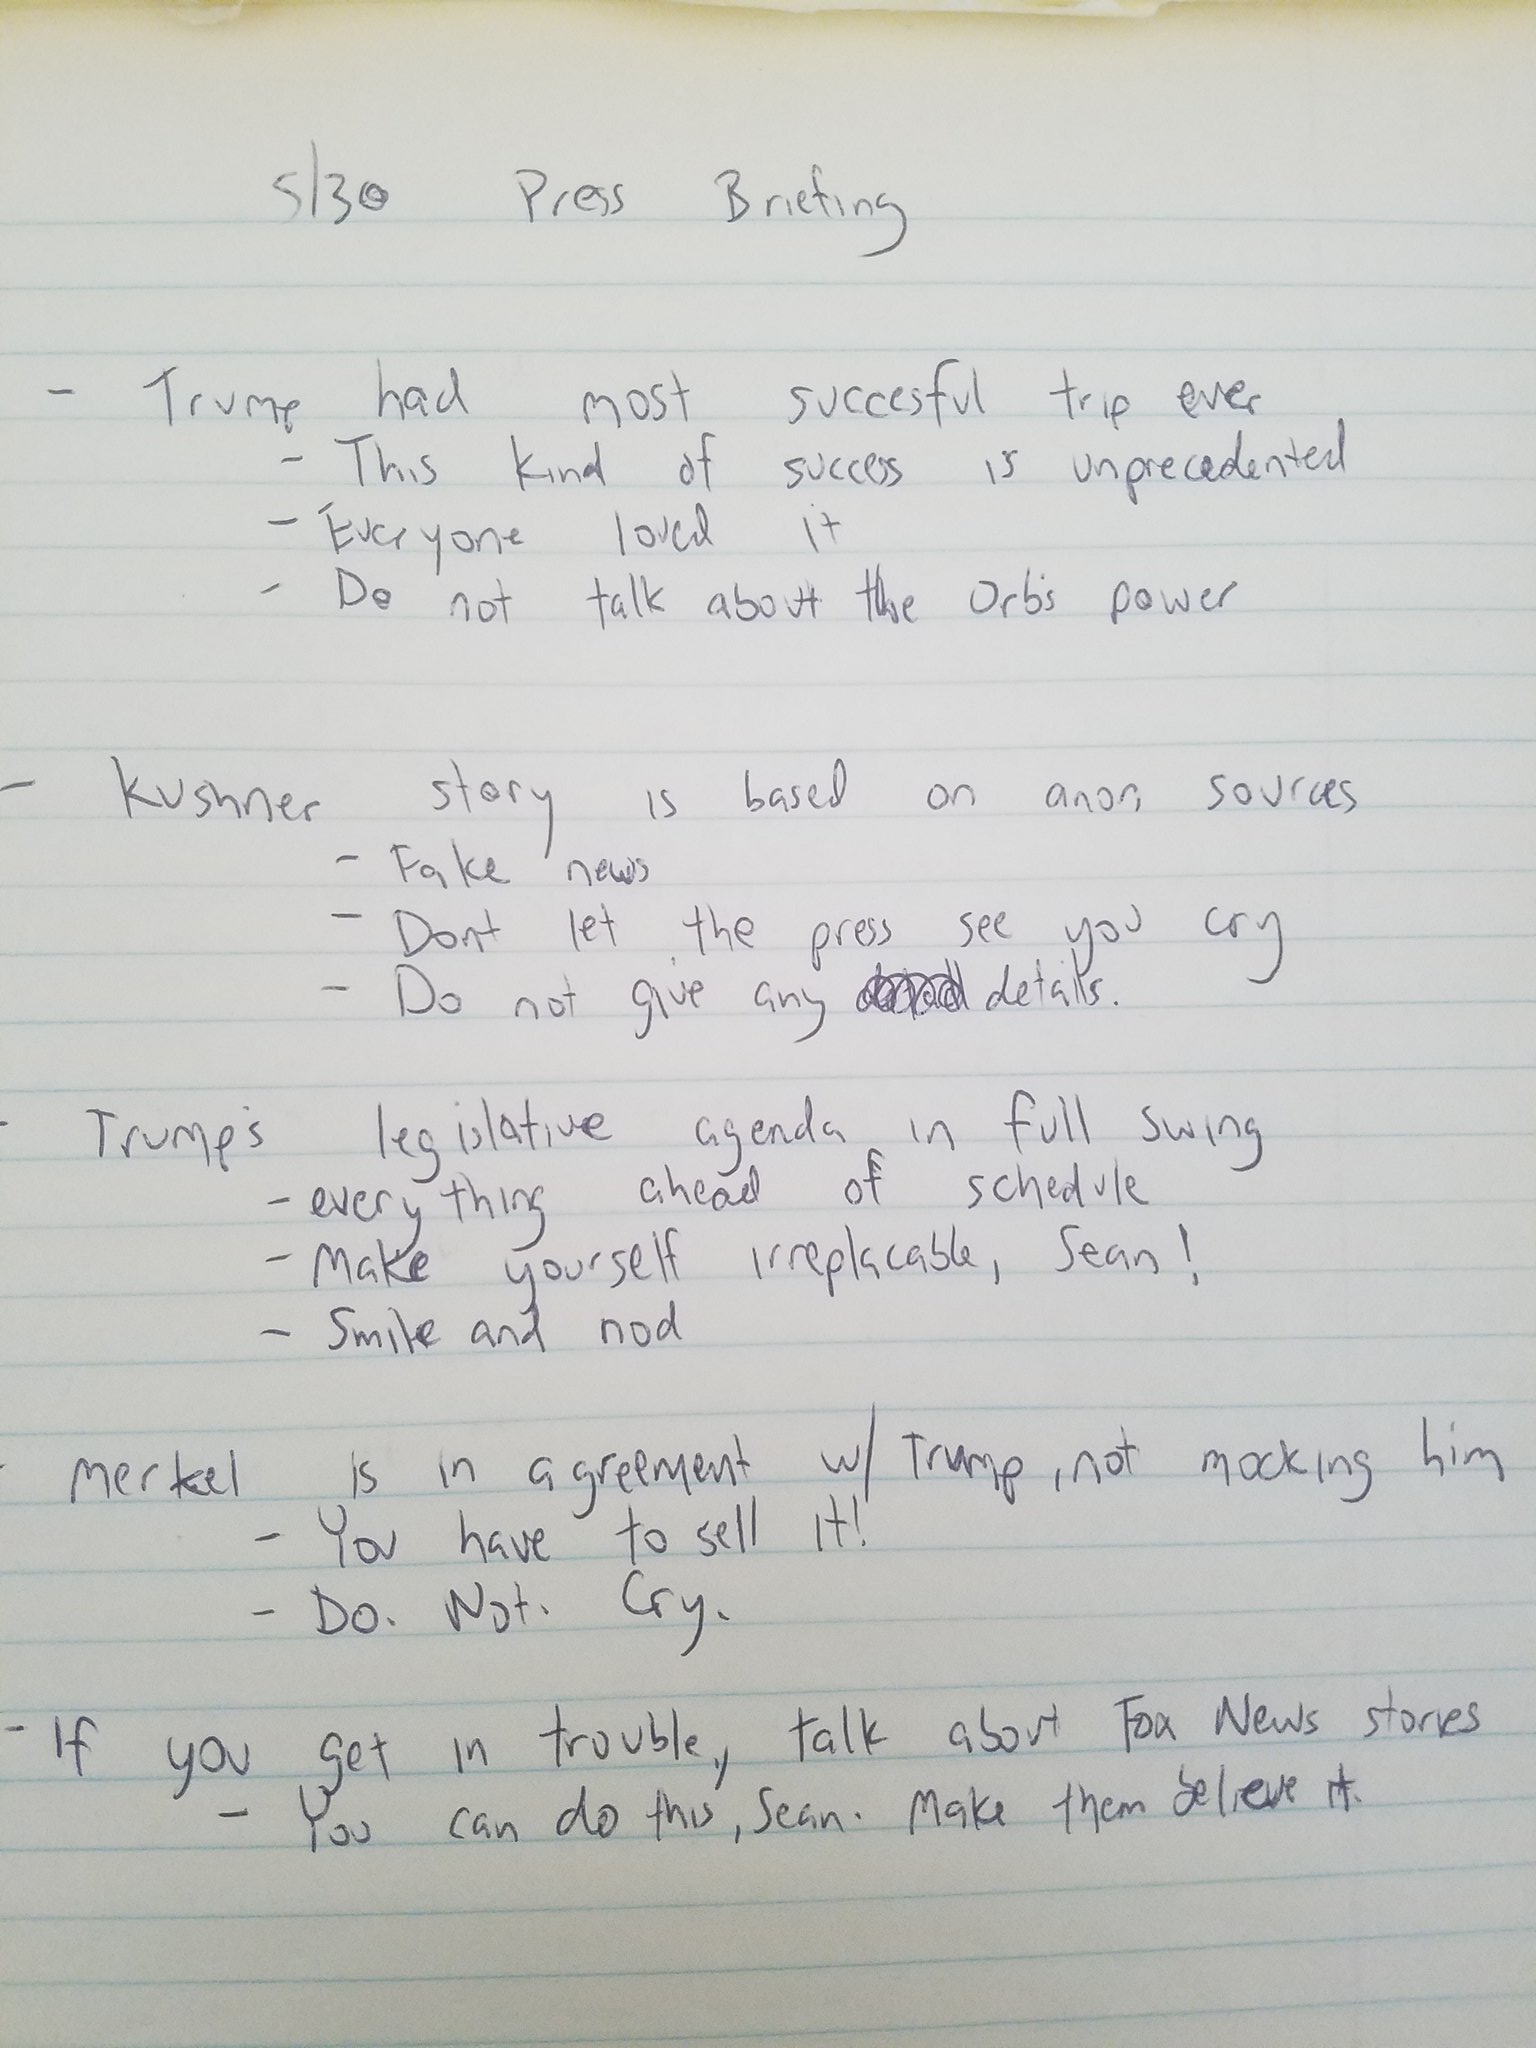 5/30 Press Briefing
- Trump had most succesful trip ever
- This kind of success is unprecedented
- Everyone loved it
- Do not talk about the Orb's power
- Kushner story is based on anon sources
- Fake news
- Dont let the press see you cry
- Do not give any details.
- Trump's legislative agenda in full swing
- everything ahead of schedule
- Make yourself irreplacable, Sean!
- Smile and nod
- Merkel is in agreement w/ Trump, not mocking him
- You have to sell it!
- Do. Not. Cry.
- If you get in trouble, talk about Fox News stories
- You can do this, Sean. Make them believe it.